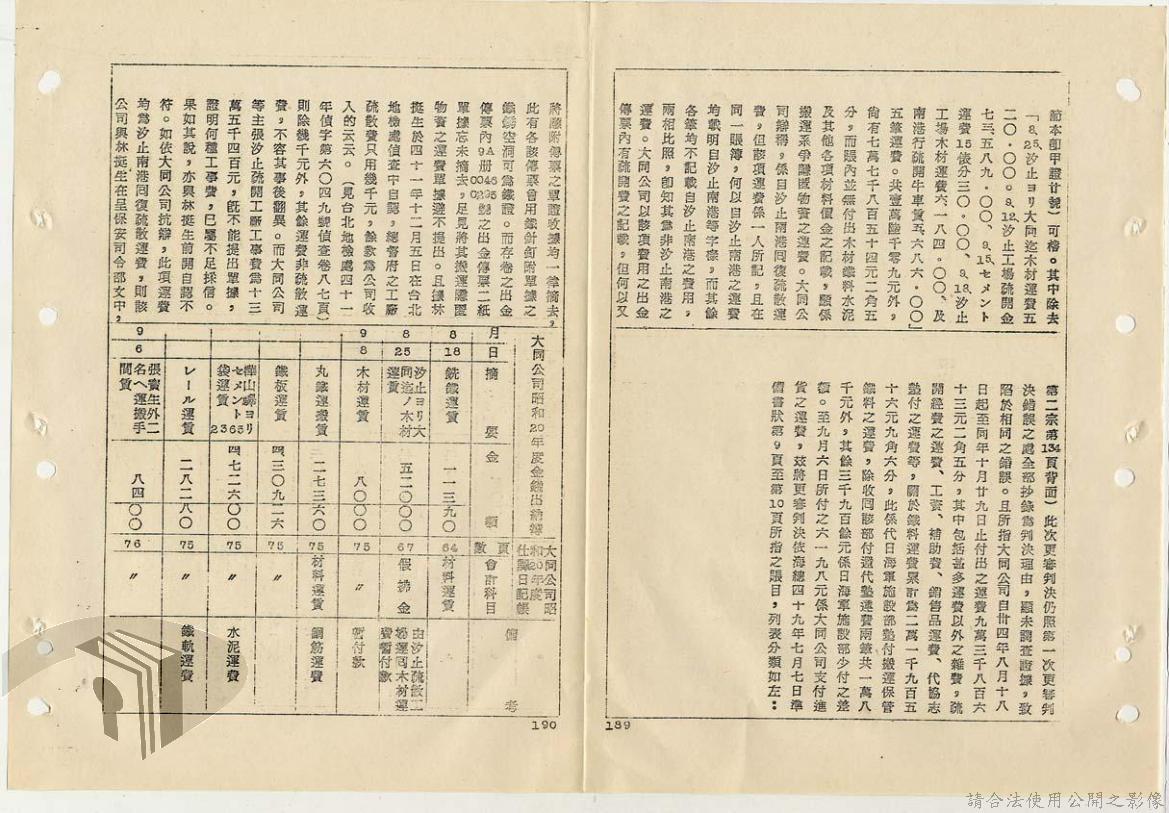 節本卽甲證廿號）可稽。其中除去
「8,25,汐止ヨリ大同迄木材運費五
二〇・〇〇。9,12,汐止工場疏開金
七三五八九・〇〇、9,15,セメント
運費15俵分三〇・〇〇、9,18,汐止
工場木材運費六一八四・〇〇、及
南港行疏開牛車賃五六八六・〇〇」
五筆運費。共壹萬陸千零九元外，
尙有七萬七千八百五十四元二角五
分，而賬內並無付出木材鐵料水泥
及其他各項材料價金之記載，顯係
搬運系爭隱匿物資之運費。大同公
司辯稱，係自汐止南港囘復疏散運
費，但該項運費係一人所記，且在
同一賬簿，何以自汐止南港之運費
均載明自汐止南港等字樣，而其餘
各筆均不記載自汐止南港之費用，
兩相比照，卽知其爲非汐止南港之
運費。大同公司以該項費用之出金
傳票內有疏開費之記載，但何以又
第二宗第134頁背面）此次更審判決仍照第一次更審判
決錯誤之處全部抄錄爲判決理由，顯未調查證據，致
陷於相同之錯誤。且所指大同公司自卅四年八月十八
日起至同年十月廿九日止付出之運費九萬三千八百六
十三元二角五分，其中包括甚多運費以外之雜費，疏
開經費之運費、工資、補助費、銷售品運費、代協志
墊付之運費等，關於鐵料運費累計爲二萬一千九百五
十六元九角六分，此係代日海軍施設部墊付搬運保管
鐵料之運費，除收囘該部付還代墊運費兩筆共一萬八
千元外，其餘三千九百餘元係日海軍施設部少付之差
額。至九月六日所付之六一九八元係大同公司支付進
貨之運費，茲將更審判決依海總四十九年七月七日準
備書狀第9頁至第10頁所指之賬目，列表分類如左：
189
將應附傳票之單證收據均一律摘去，
此有各該傳票會用鐵針釘附單據之
鐵銹空洞可爲鐵證。而存卷之出金
傳票內9A册0046 0295號之出金傳票二紙
單據忘未摘去，足見將其搬運隱匿
物資之運費單據避不提出。且據林
挺生於四十一年十二月五日在台北
地檢處偵查中自認，總督府之工廠
疏散費只用幾千元，餘款爲公司收
入的云云。（見台北地檢處四十一
年偵字第六〇四九號偵查卷八七頁）
則除幾千元外，其餘運費非疏散運
費，不容其事後翻異。而大同公司
等主張汐止疏開工廠工事費爲十三
萬五千四百元，旣不能提出單據，
證明何種工事費，已屬不足採信。
果如其說，亦與林挺生前開自認不
符。如依大同公司抗辯，此項運費
均爲汐止南港囘復疏散運費，則該
公司與林挺生在呈保安司令部文中，
大同公司昭和20年度金錢出納簿
大同公司昭和20年度仕譯日記帳
月 日 摘要 金額 頁數 會計科目 備考
8 18 銑鐵運賃 一一三九〇 64 材料運賃
8 25 汐止ヨリ大同迄ノ木材運賃 五二〇〇〇 67 假拂金 由汐止疏散工場運囘木材運費暫付款
9 8 木材運賃 八〇〇〇 75 〃 暫付款
丸鐵運搬賃 二七三六〇 75 材料運賃 鋼筋運費
鐵板運賃 四三〇九二六 75 〃
樺山驛ヨリセメント2365袋運賃 四七二六〇〇 75 〃 水泥運費
レール運賃 二八二八〇 75 〃 鐵軌運費
9 6 張寶生外二名ヘ運搬手間賃 八四〇〇 76 〃
190
請合法使用公開之影像